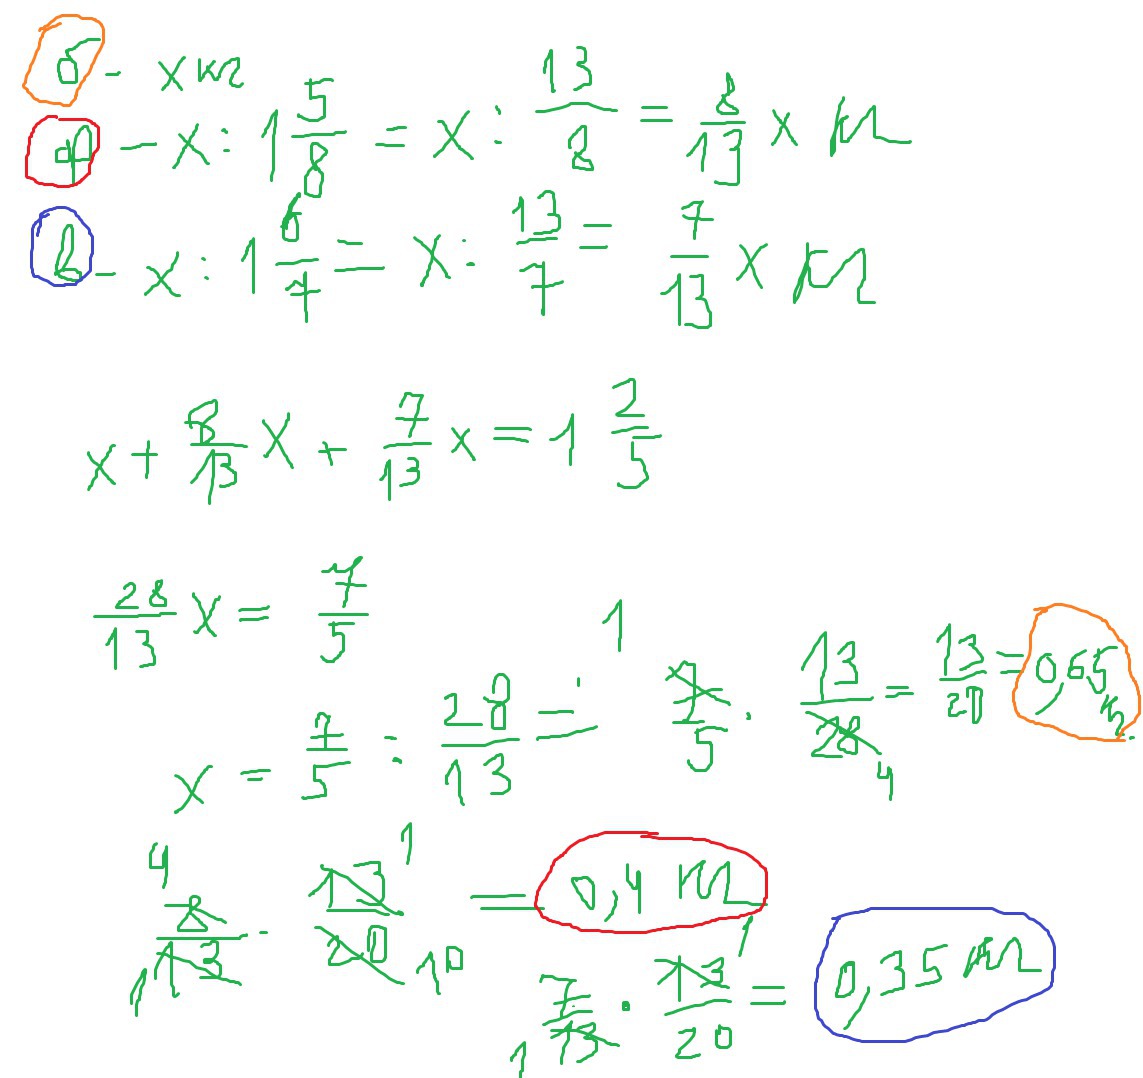 б - x кг
ф - x : 1 5/8 = x : 13/8 = 8/13 x кг
в - x : 1 6/7 = x : 13/7 = 7/13 x кг
x + 8/13 x + 7/13 x = 1 2/5
28/13 x = 7/5
x = 7/5 : 28/13 = 7/5 · 13/28 = 13/20 = 0,65 кг.
1 4
8/13 · 13/20 = 0,4 кг
4 1 1 10
7/13 · 13/20 = 0,35 кг
1 1